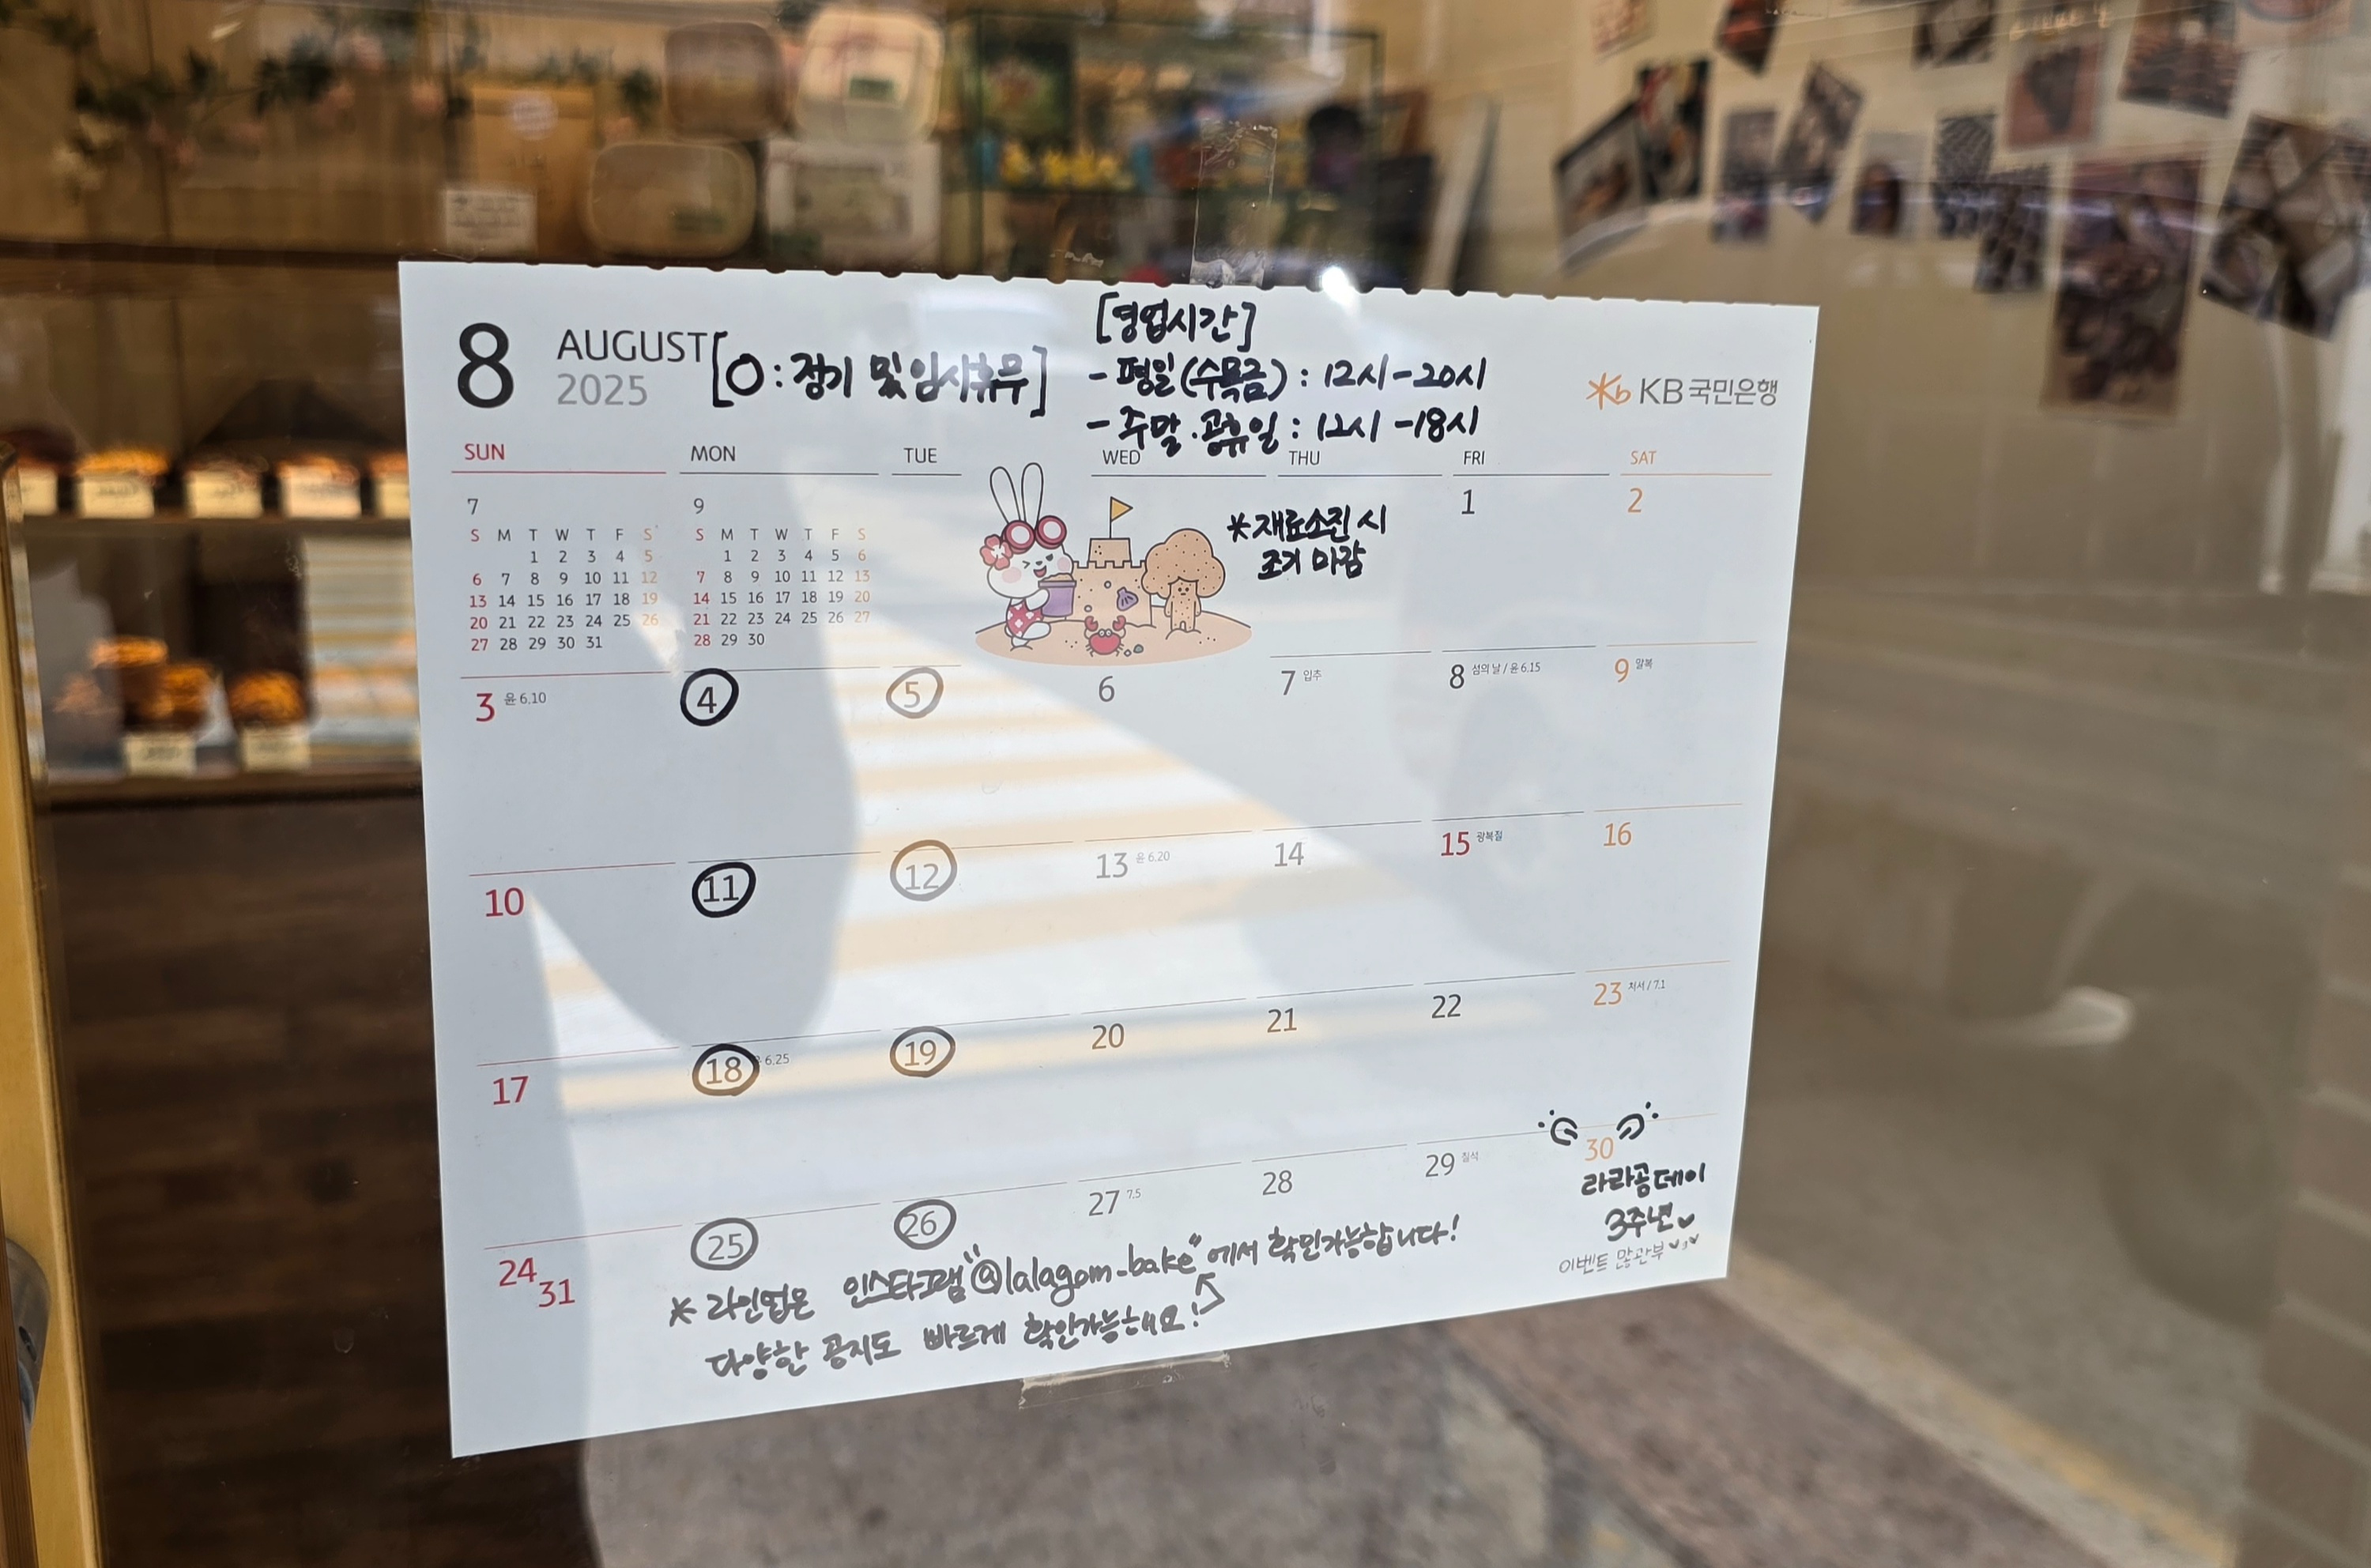 8 AUGUST 2025 [O : 정기 및 임시휴무]
[영업시간]
- 평일(수목금) : 12시-20시
- 주말.공휴일 : 12시-18시
KB 국민은행
SUN MON TUE WED THU FRI SAT
7
S M T W T F S
1 2 3 4 5
6 7 8 9 10 11 12
13 14 15 16 17 18 19
20 21 22 23 24 25 26
27 28 29 30 31
9
S M T W T F S
1 2 3 4 5 6
7 8 9 10 11 12 13
14 15 16 17 18 19 20
21 22 23 24 25 26 27
28 29 30
*재료소진 시
조기 마감
1 2
3 윤 6.10 4 5 6 7 입추 8 섬의 날 / 윤 6.15 9 말복
10 11 12 13 윤 6.20 14 15 광복절 16
17 18 6.25 19 20 21 22 23 처서 / 7.1
24 31 25 26 27 7.5 28 29 칠석 30
라라곰데이
3주년
이벤트 많관부
* 라인업은 인스타그램 "@lalagom_bake" 에서 확인가능합니다!
다양한 공지도 빠르게 확인가능해요!